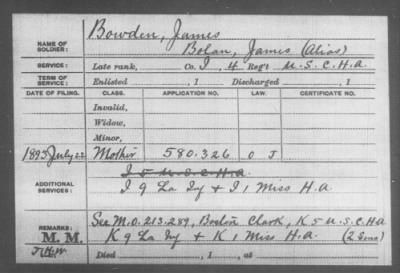 Bowden, James
NAME OF SOLDIER: Bolan, James (Alias)
SERVICE: Late rank, Co. I, 4 Reg't U.S.C.H.A.
TERM OF SERVICE: Enlisted , 1 Discharged , 1
DATE OF FILING. CLASS. APPLICATION NO. LAW. CERTIFICATE NO.
Invalid,
Widow,
Minor,
1893 July 22 Mother 580.326 O J
I 5 U.S.C.H.A.
ADDITIONAL SERVICES: I 9 La Inf & I 1 Miss H.A
REMARKS: See M.O. 213.289, Clark, K 5 U.S.C.HA
M. M. K 9 La Inf & K 1 Miss H.A. (2 Sons)
Died , 1 , at